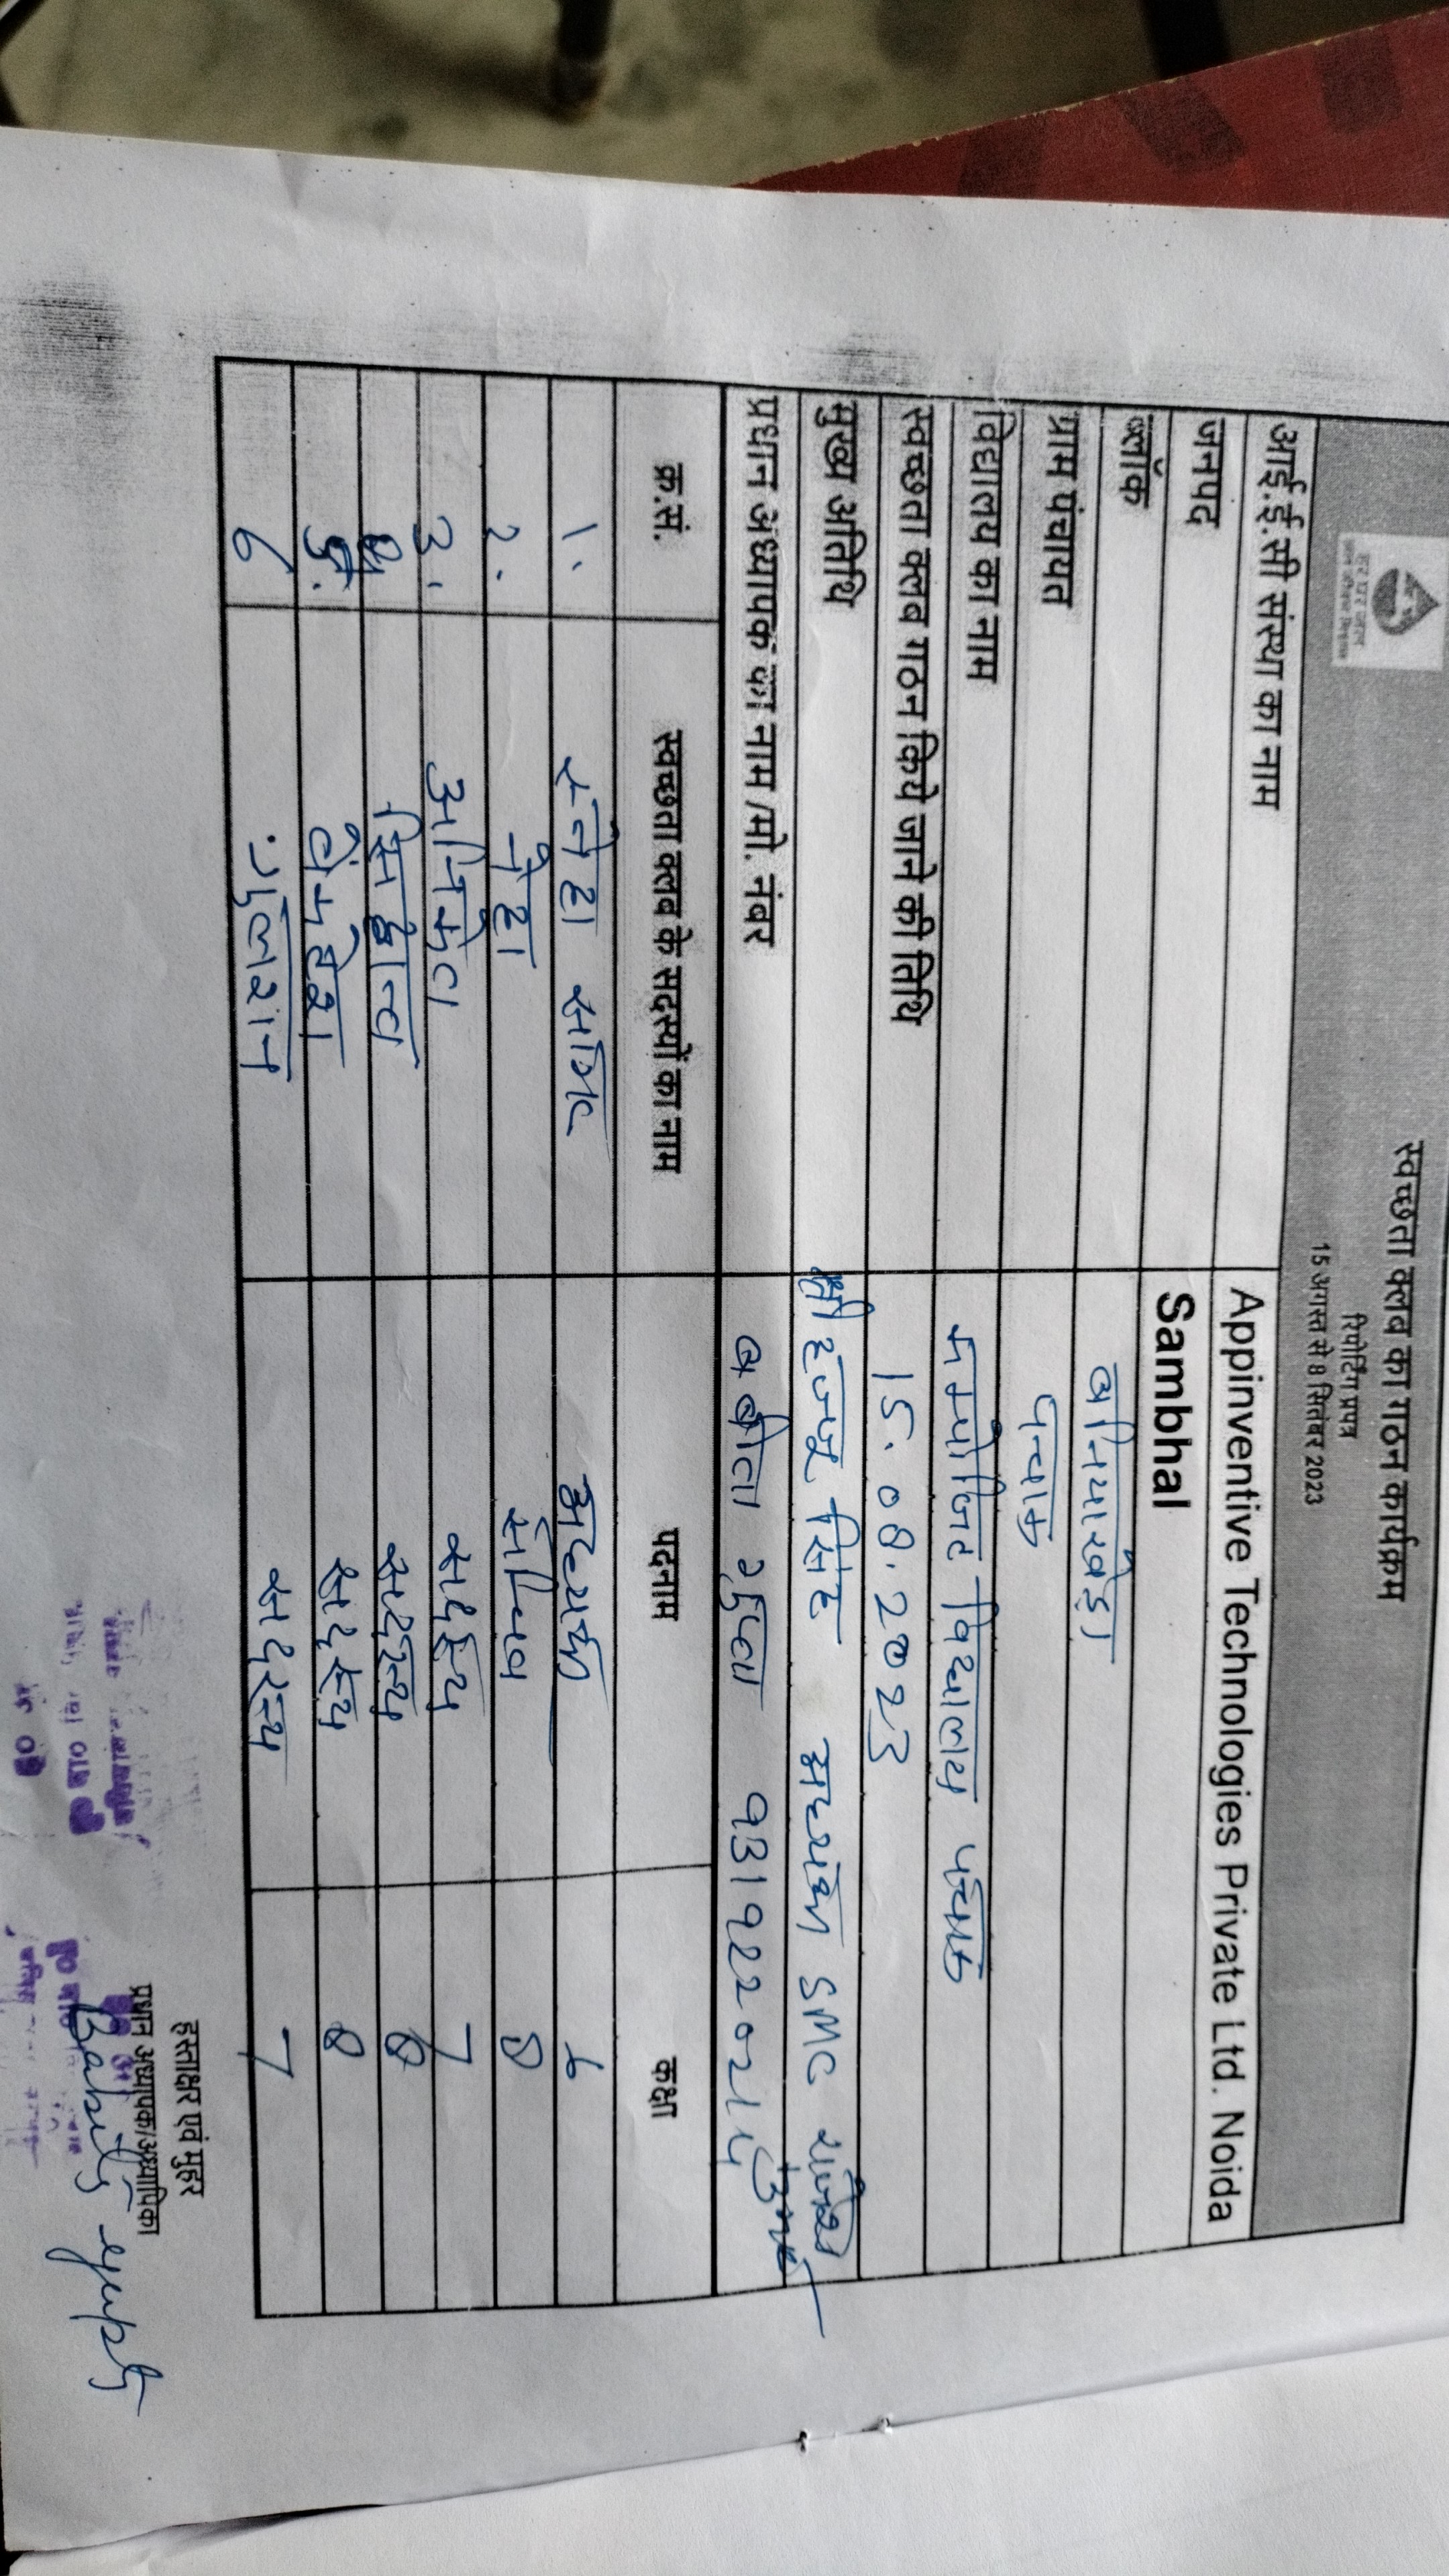 स्वच्छता क्लब का गठन कार्यक्रम
रिपोर्टिंग प्रपत्र
15 अगस्त से 8 सितंबर 2023
हर घर जल
जल जीवन मिशन
आई.ई.सी संस्था का नाम Appinventive Technologies Private Ltd. Noida
जनपद Sambhal
ब्लॉक बनियाखेड़ा
ग्राम पंचायत
विद्यालय का नाम कम्पोजिट विद्यालय
स्वच्छता क्लब गठन किये जाने की तिथि 15.08.2023
मुख्य अतिथि श्री सिंह अध्यक्ष SMC
प्रधान अध्यापक का नाम /मो. नंबर बबीता गुप्ता 9319220214
क्र.सं. स्वच्छता क्लब के सदस्यों का नाम पदनाम कक्षा
1. स्नेहा सागर अध्यक्ष 6
2. नेहा सचिव 8
3. अनिकेत सदस्य 7
4 सिद्धान्त सदस्य 8
5. सदस्य 8
6 गुलशन सदस्य 7
हस्ताक्षर एवं मुहर
प्रधान अध्यापक/अध्यापिका
Babita Gupta